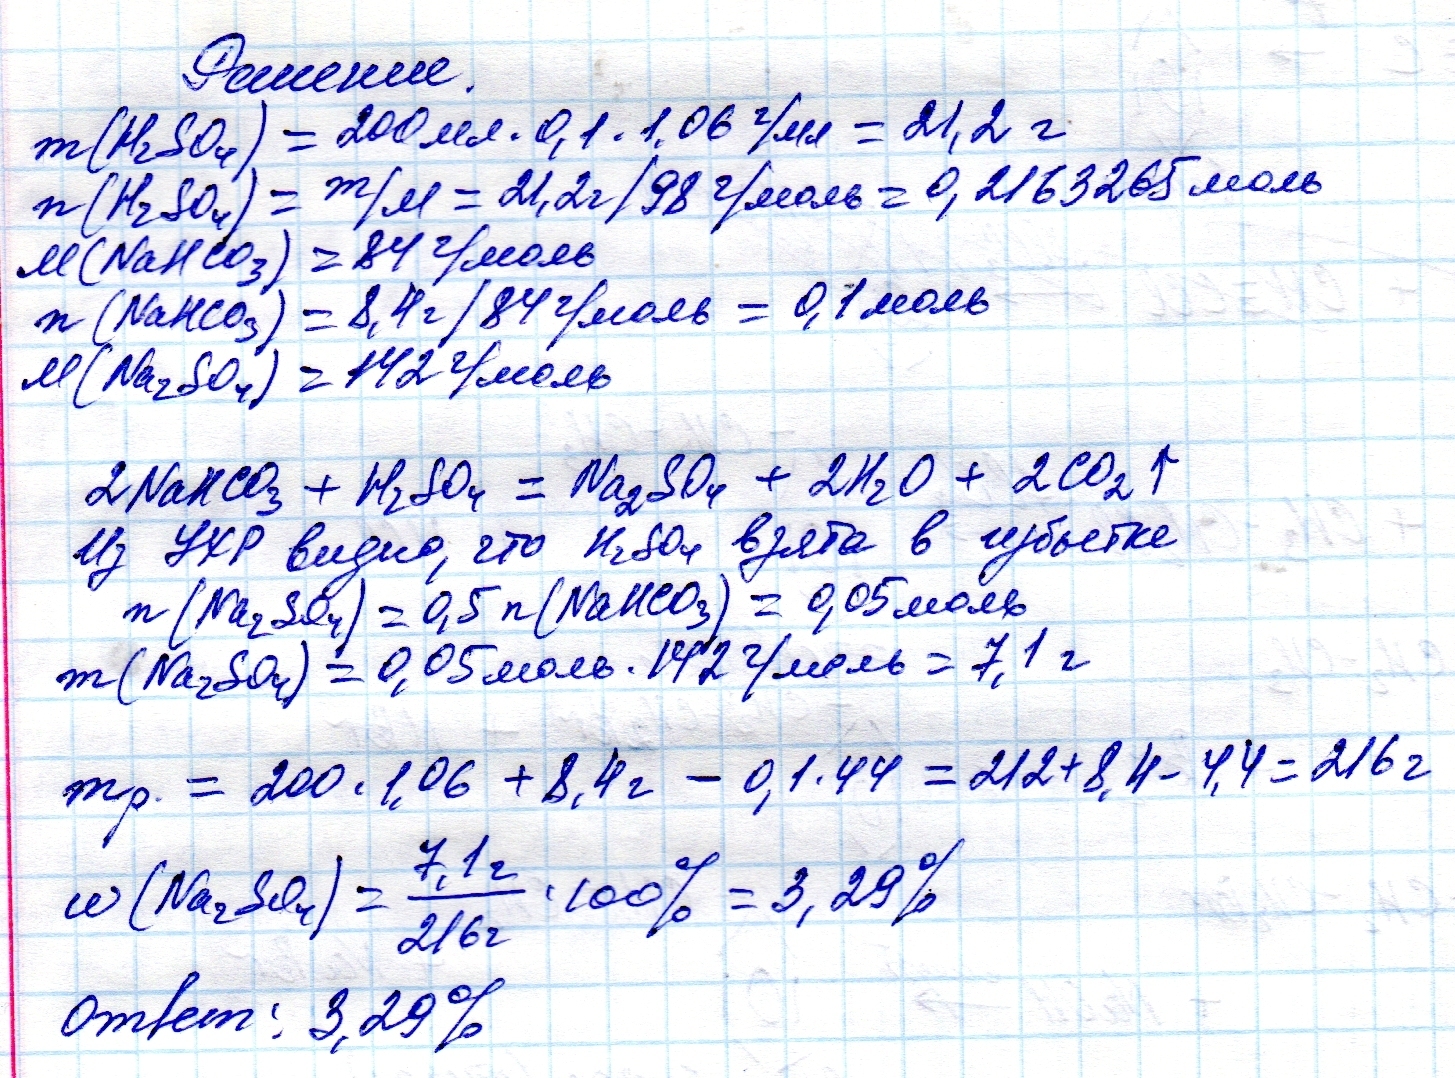 Решение.
m(H₂SO₄) = 200мл · 0,1 · 1,06 г/мл = 21,2 г
n(H₂SO₄) = m/M = 21,2г/98 г/моль = 0,2163265 моль
M(NaHCO₃) = 84 г/моль
n(NaHCO₃) = 8,4г/84 г/моль = 0,1 моль
M(Na₂SO₄) = 142 г/моль
2NaHCO₃ + H₂SO₄ = Na₂SO₄ + 2H₂O + 2CO₂↑
Из УХР видно, что H₂SO₄ взята в избытке
n(Na₂SO₄) = 0,5 n(NaHCO₃) = 0,05 моль
m(Na₂SO₄) = 0,05 моль · 142 г/моль = 7,1 г
mр. = 200 · 1,06 + 8,4г − 0,1 · 44 = 212 + 8,4 − 4,4 = 216 г
w(Na₂SO₄) = 7,1г/216г · 100% = 3,29%
Ответ: 3,29%